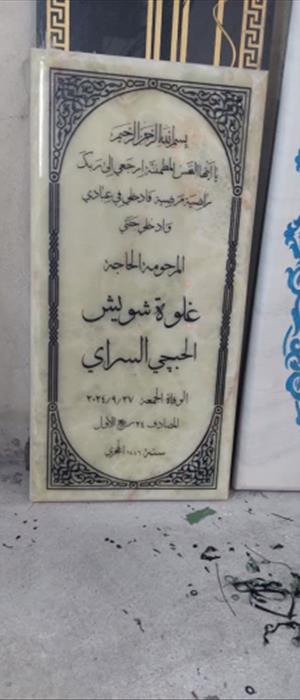 بسم الله الرحمن الرحيم
يا أيتها النفس المطمئنة ارجعي إلى ربك
راضية مرضية فادخلي في عبادي
وادخلي جنتي
المرحومة الحاجة
غلوة شويش
الحبجي السراي
الوفاة الجمعة ٢٠٢٤/٩/٢٧
المصادف ٢٤ ربيع الأول
سنة ١٤٤٦ هجري